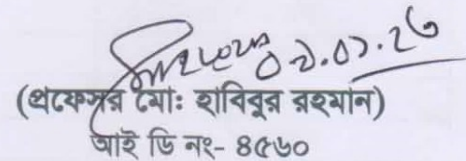 ০১.০১.২৬
(প্রফেসর মোঃ হাবিবুর রহমান)
আই ডি নং- ৪৫৬০